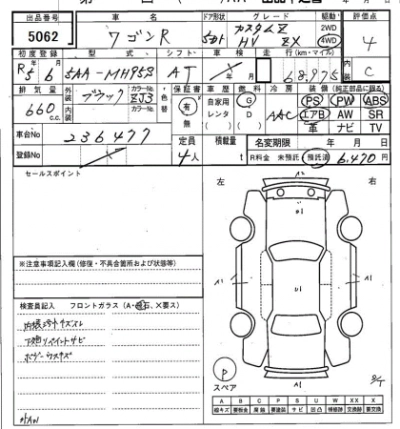 出品番号 車名 ドア形状 グレード 駆動 評価点
5062 ワゴンR 5ドア カスタムZ HV ZX 2WD 4WD 4
初度登録 型式 シフト 車検 走行(km・マイル) 内装
R5 6 5AA-MH95S AT 68,975 C
排気量 外装 ブラック カラーNo. ZJ3 色替 保証書 車歴 燃料 冷房 装備(純正部品に限る)
660 c.c. 内装 カラーNo. 有 無 自家用 レンタ G D AAC PS PW ABS
エアB AW SR
革 ナビ TV
車台No 236477 定員 積載量 名変期限 年 月 日
登録No 4人 t R料金 未預託 預託済 6,470円
セールスポイント
左 右
※注意事項記入欄(修復・不具合箇所および状態等)
検査員記入 フロントガラス(A・飛石、X要ス)
内装コゲキズスレ
下廻リペイントサビ
ボデーウスキズ
A1
A1
A1
A1
P
スペア
A B C P S U W X XX
線キズ 要板金 腐触 要塗装 サビ 凹凸 補修跡 要交換 交換跡